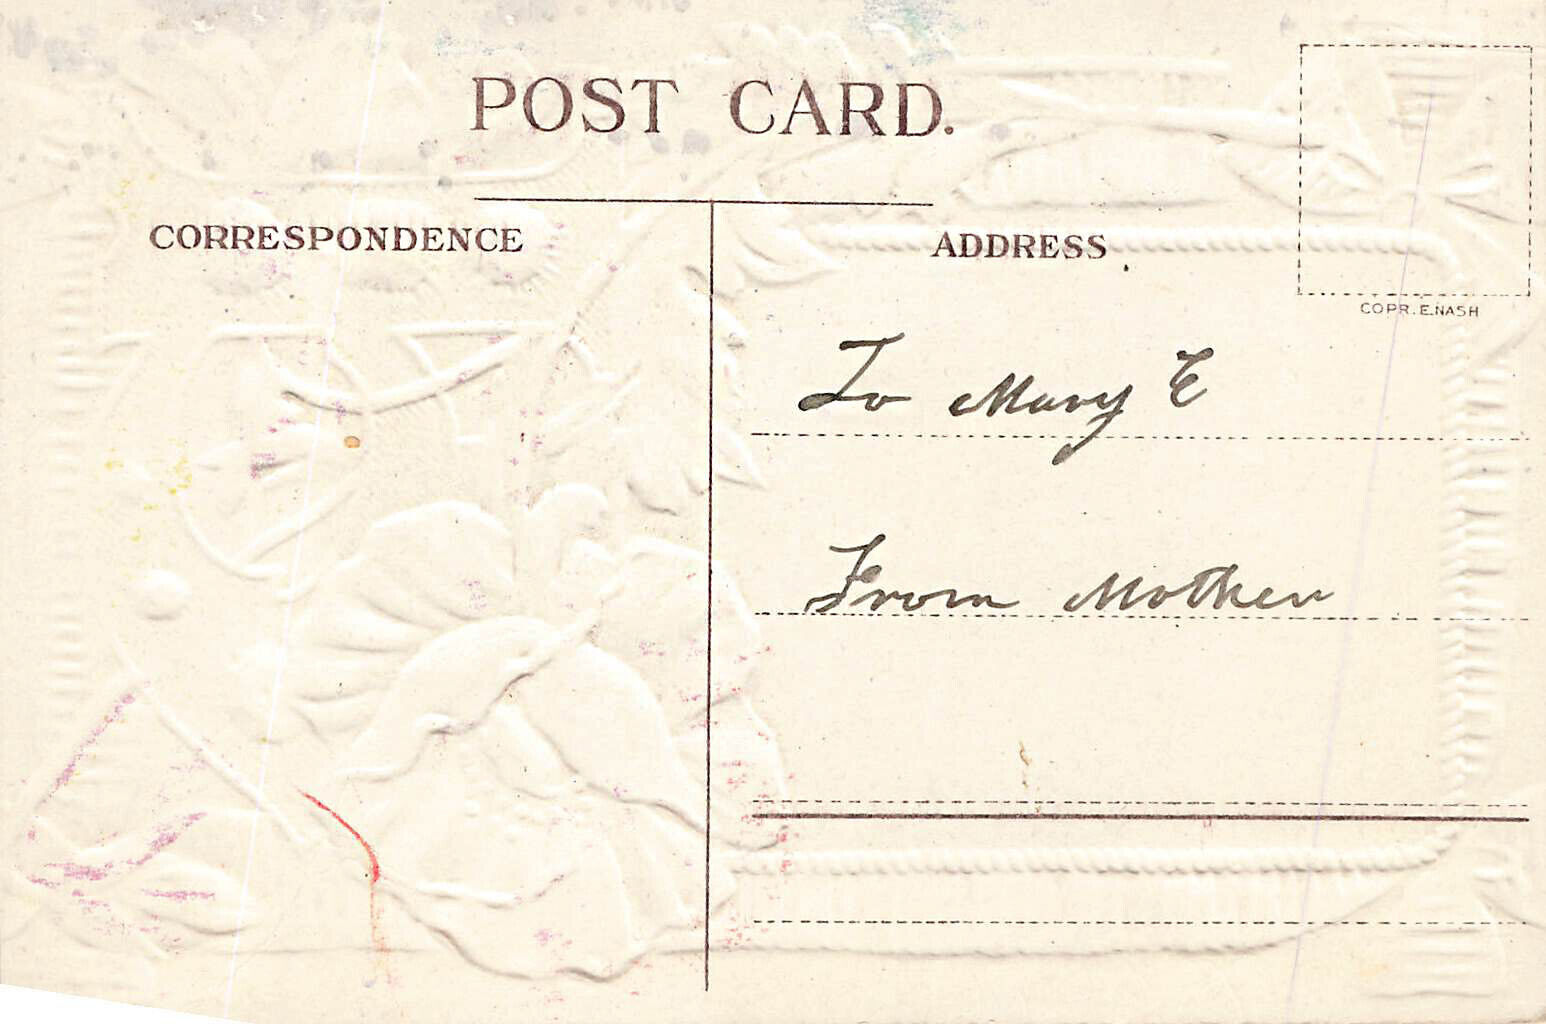 POST CARD.
CORRESPONDENCE
ADDRESS
COPR. E. NASH
To Mary E
From Mother